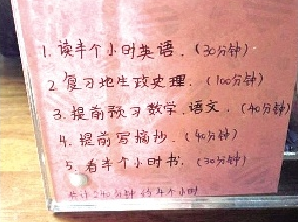 1. 读半个小时英语. (30分钟)
2 复习地生政史理. (100分钟)
3. 提前预习数学、语文. (40分钟)
4. 提前写摘抄. (40分钟)
5. 看半个小时书. (30分钟)
共计240分钟 约4个小时